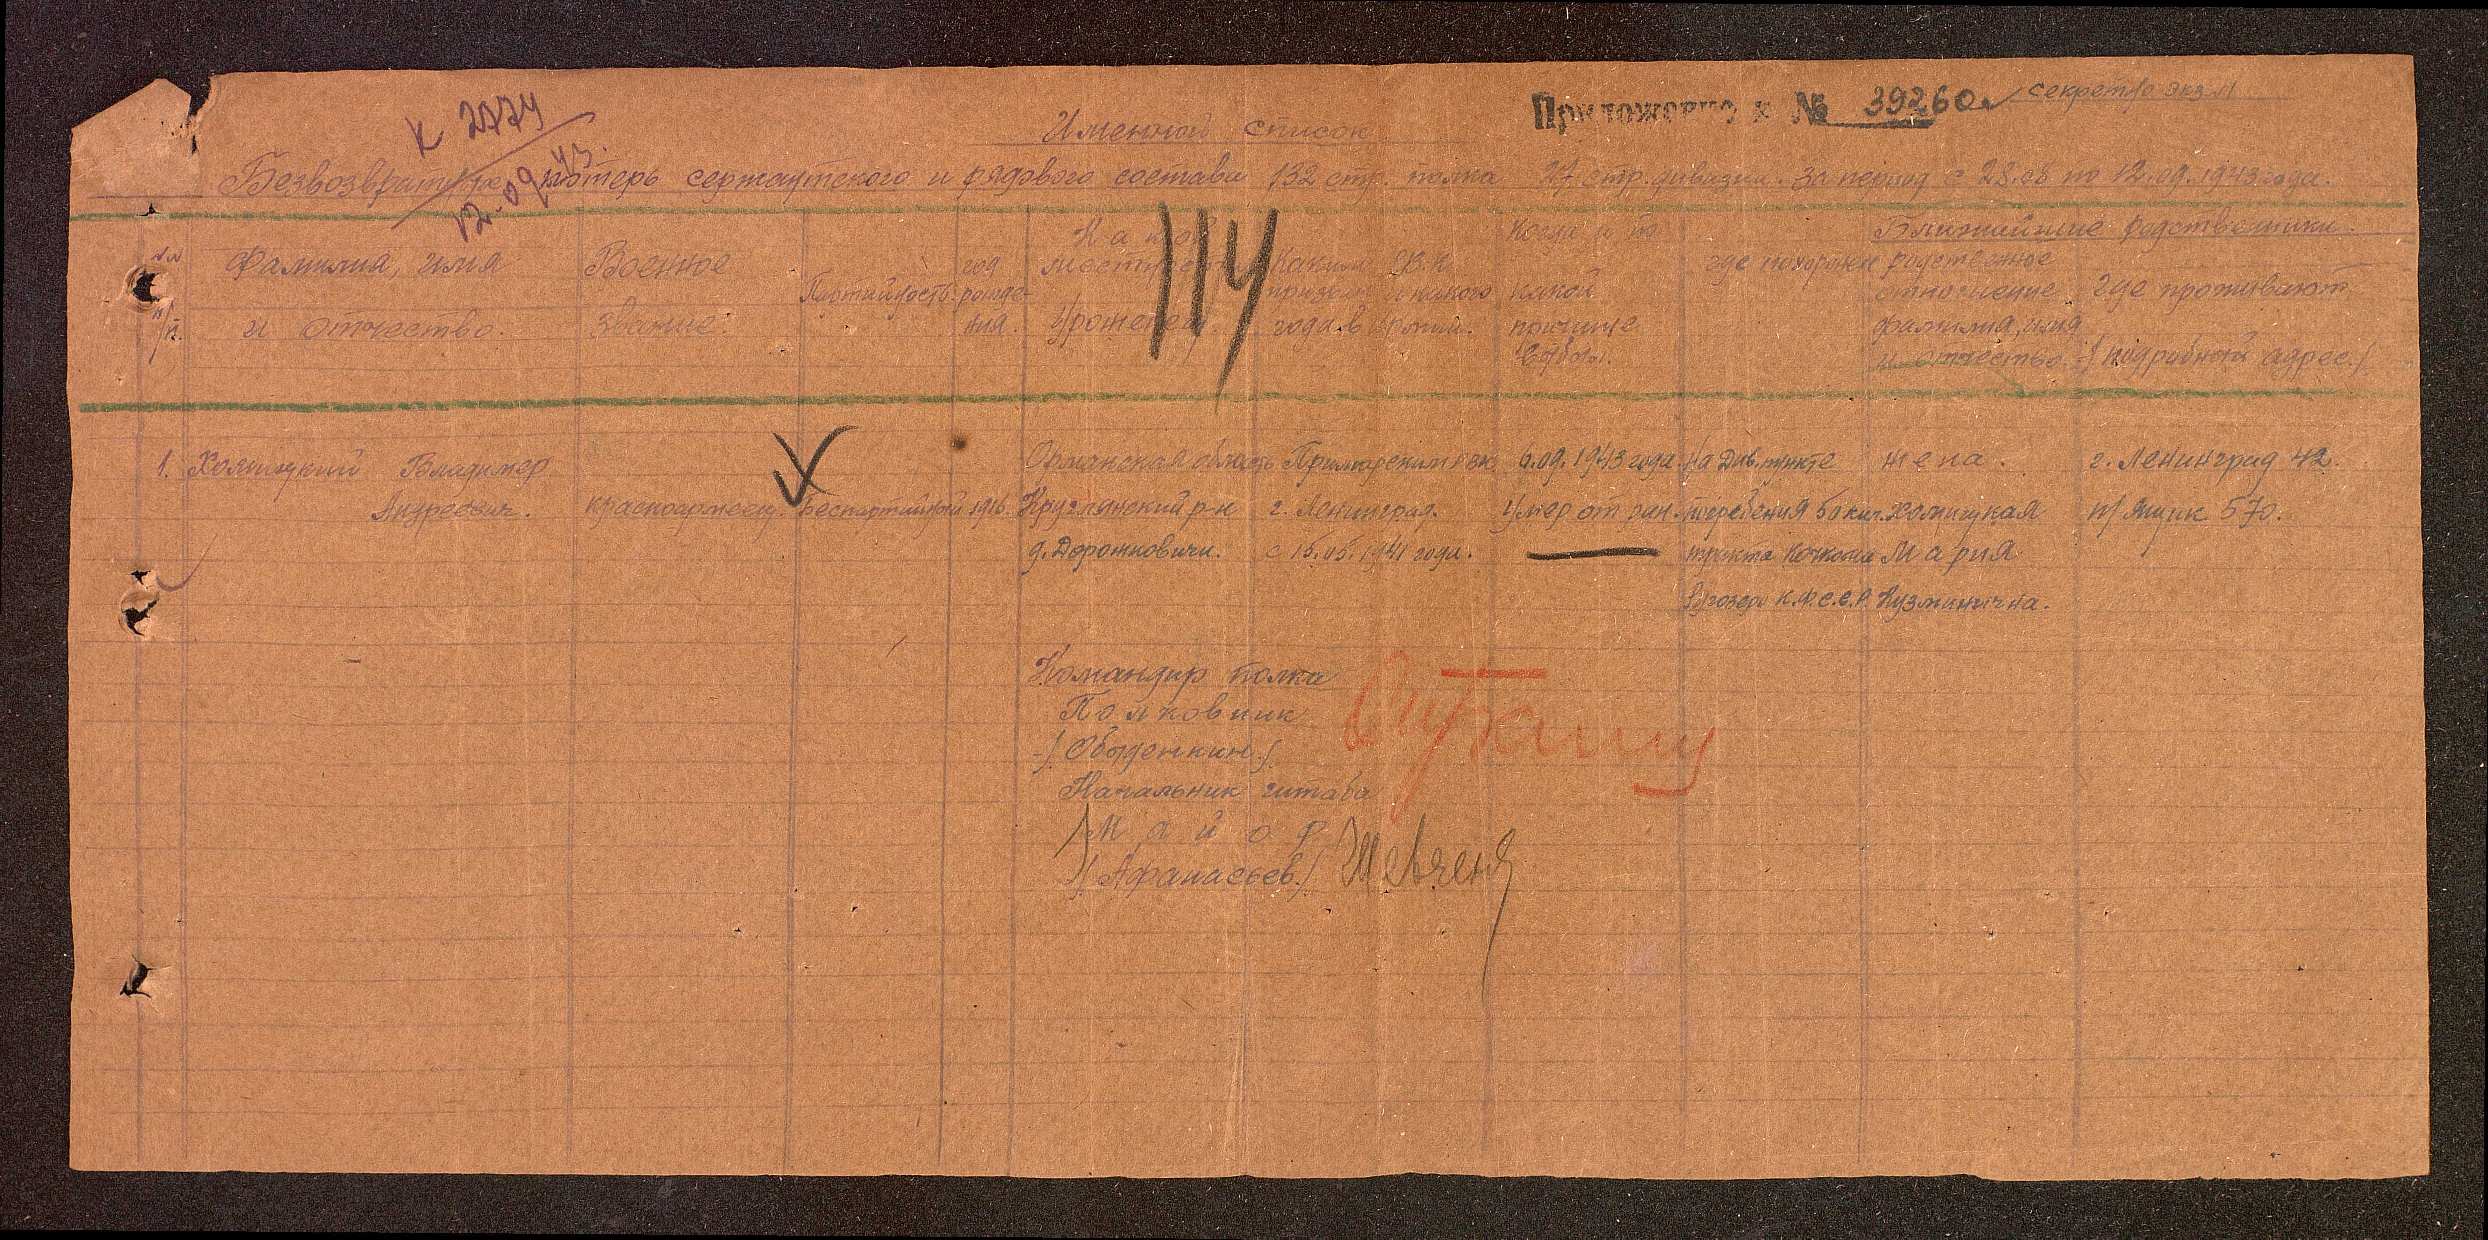 К 2774
12.09.43.
Приложение к № 39260с
секретно экз №1
Именной список
Безвозвратных потерь сержантского и рядового состава 132 стр. полка 27 стр. дивизии. за период с 28.08 по 12.09.1943 года.
114
№№ п/п.
Фамилия, имя и отчество.
Военное звание.
Партийность.
год рожде-ния.
Какой местности Уроженец.
Каким Р.В.К. призван и какого года в армии.
Когда и по какой причине выбыл.
где похоронен
Ближайшие родственники.
родственное отношение фамилия, имя и отчество.
Где проживают /подробный адрес./
1. Хомицкий Владимир Андреевич.
красноармеец.
беспартийный
1916
Круглянский р-н
г. Ленинград.
с 15.05.1941 года.
9.09.1943 года.
Умер от ран.
на Див. пункте
погребения
тракта Кочкома
К.Ф.С.С.Р.
жена.
Хомицкая
Мария
Кузминична.
г. Ленинград 42.
п/ Ящик 570.
Командир полка
Полковник
/Обыденкин/.
Начальник штаба
Майор
/Афанасьев/